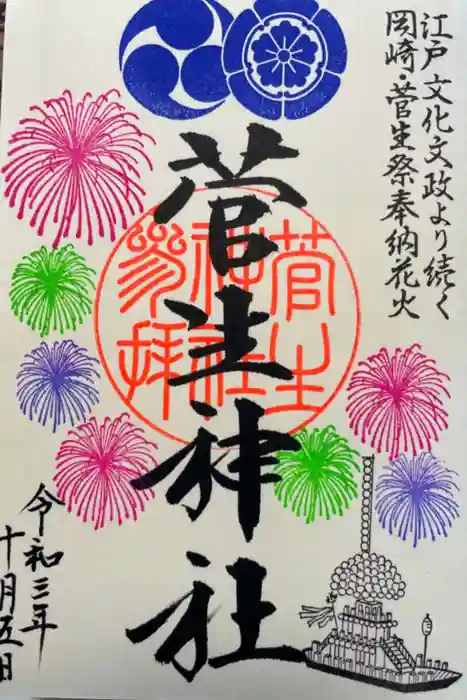 江戸文化文政より続く
岡崎・菅生祭奉納花火
菅生神社
菅生
神社
参拝
令和三年
十月五日